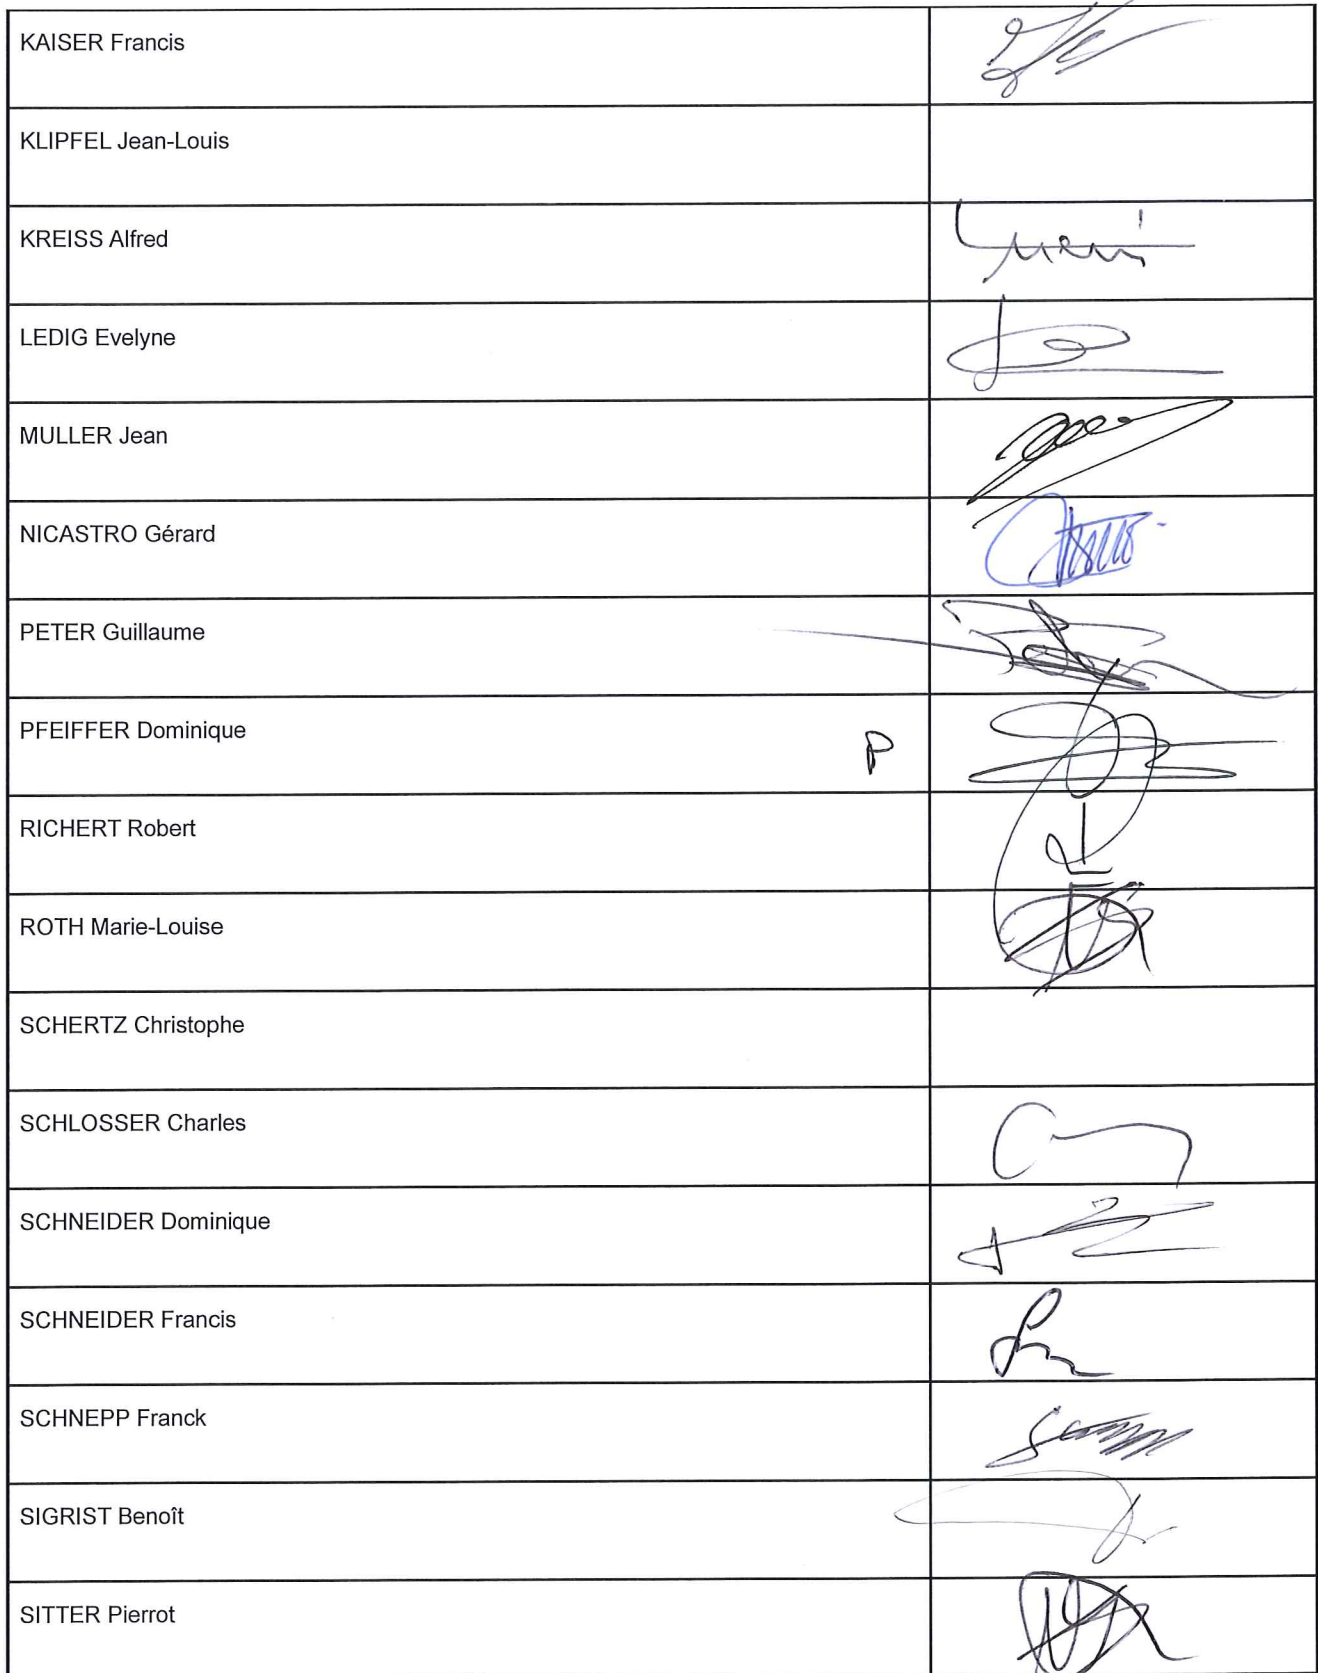 KAISER Francis
KLIPFEL Jean-Louis
KREISS Alfred
LEDIG Evelyne
MULLER Jean
NICASTRO Gérard
PETER Guillaume
PFEIFFER Dominique P
RICHERT Robert
ROTH Marie-Louise
SCHERTZ Christophe
SCHLOSSER Charles
SCHNEIDER Dominique
SCHNEIDER Francis
SCHNEPP Franck
SIGRIST Benoît
SITTER Pierrot